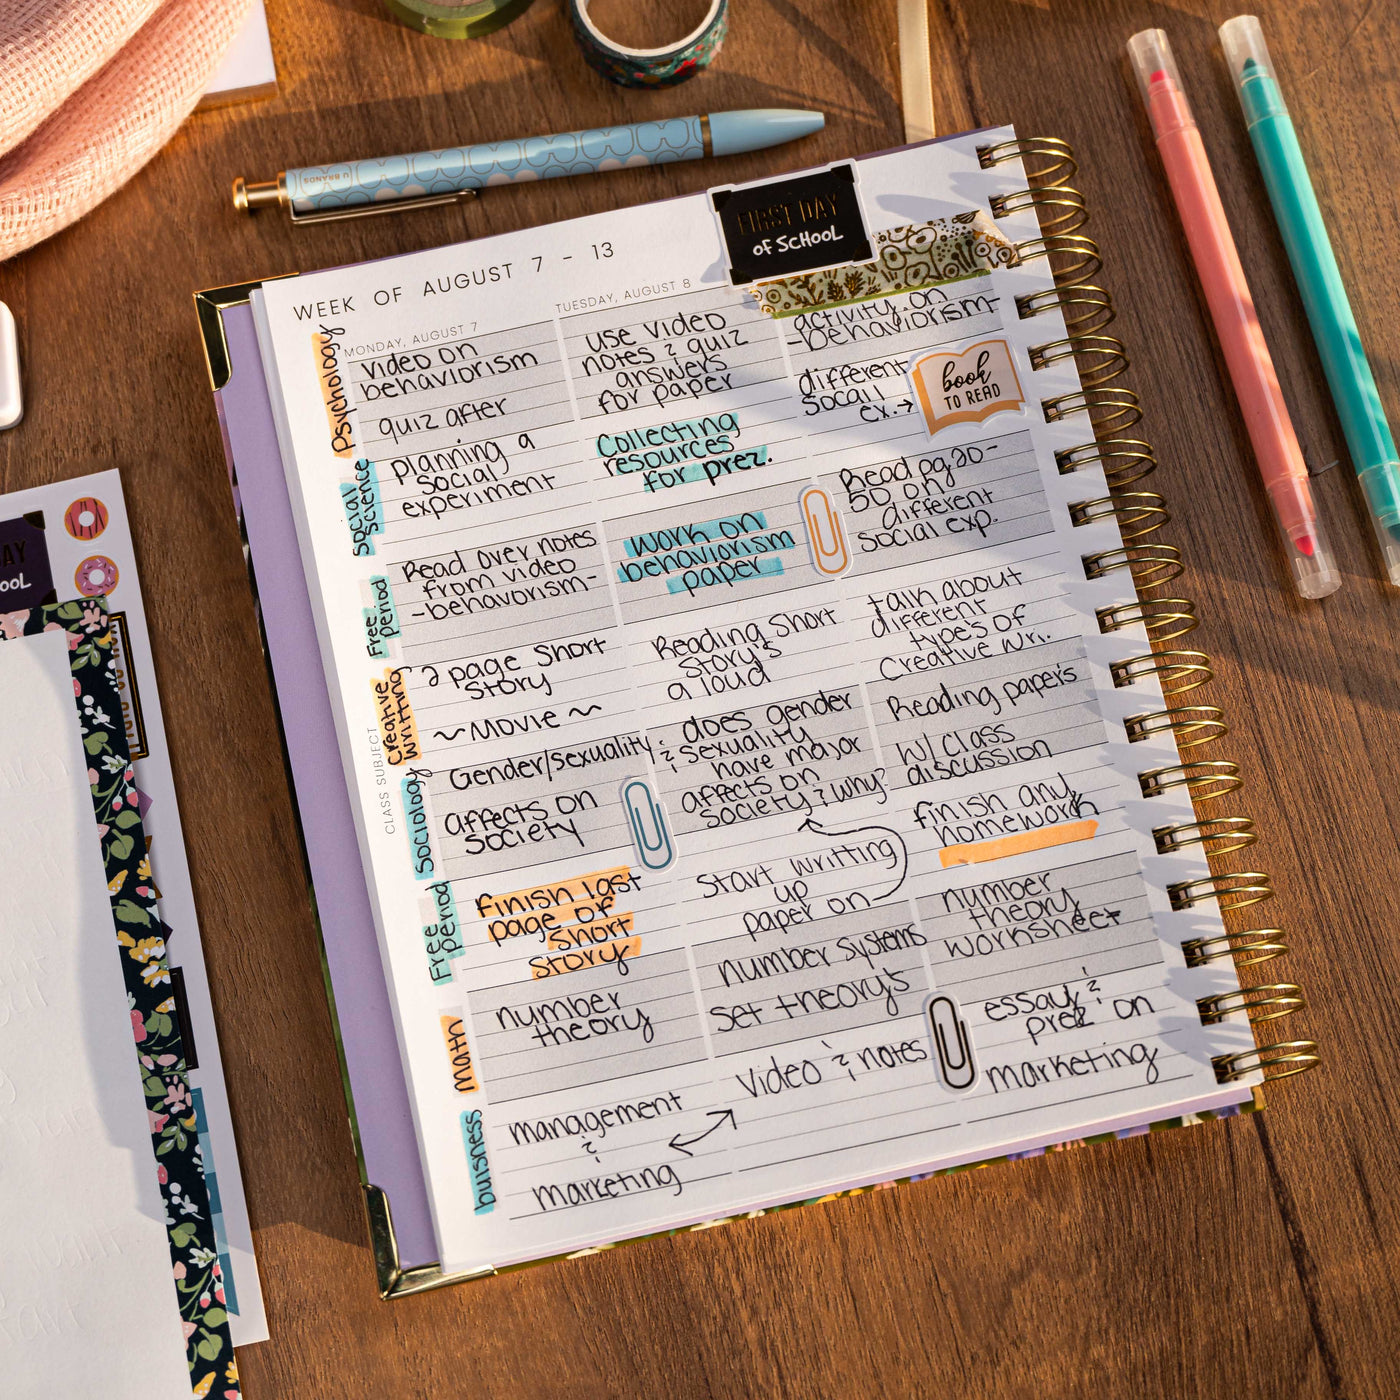 U BRANDS
FIRST DAY
OF SCHOOL
WEEK OF AUGUST 7 - 13
MONDAY, AUGUST 7
TUESDAY, AUGUST 8
CLASS SUBJECT
Psychology
video on
behaviorism
quiz after
use video
notes & quiz
answers
for paper
activity on
-behaviorism-
Social
Science
planning a
social
experiment
Collecting
resources
for prez.
different
socail
ex.→
book
TO READ
Free
Period
Read over notes
from video
-behavorism-
work on
behaviorism
paper
Read pg 20-
50 on
different
social exp.
Creative
Writting
2 page Short
Story
~Movie~
Reading Short
Story's
a loud
talk about
different
types of
Creative wri.
Sociology
Gender/sexuality
affects on
society
does gender
& sexuality
have major
affects on
society & why?
Reading paper's
w/ class
discussion
Free
period
finish last
page of
short
story
Start writting
up
paper on
finish any
homework
Math
number
theory
number systems
set theory's
number
theory
worksheet
buisness
management
&
marketing
Video & notes
essay &
prez on
marketing
AY
OOL